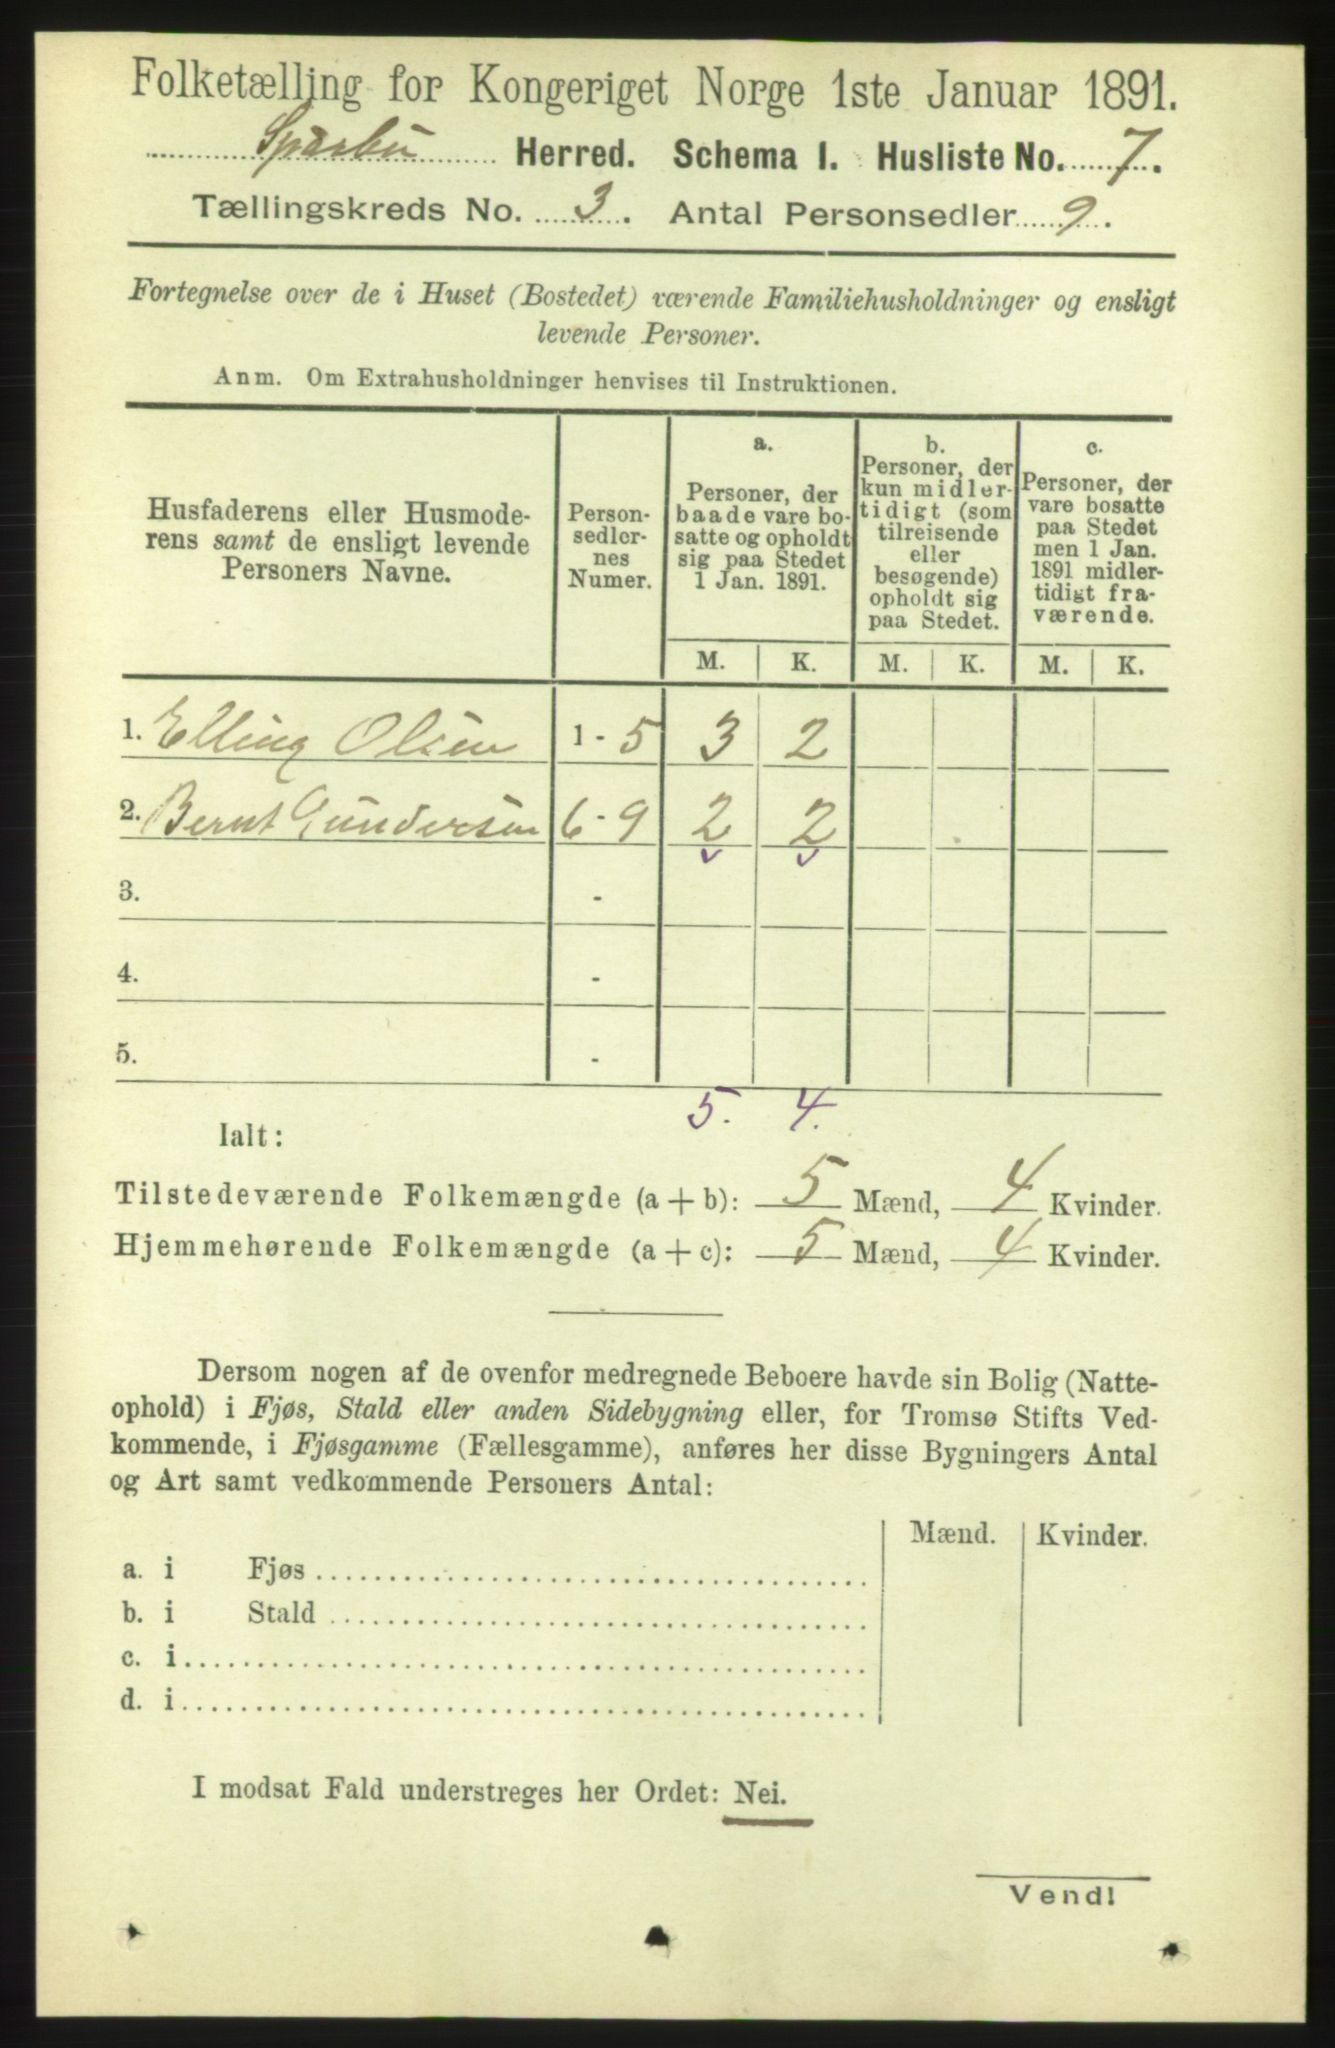 Folketælling for Kongeriget Norge 1ste Januar 1891.
Sparbu Herred. Schema I. Husliste No. 7.
Tællingskreds No. 3. Antal Personsedler 9.
Fortegnelse over de i Huset (Bostedet) værende Familiehusholdninger og ensligt
levende Personer.
Anm. Om Extrahusholdninger henvises til Instruktionen.
Husfaderens eller Husmode-
rens samt de ensligt levende
Personers Navne.
Person-
sedler-
nes
Numer.
a.
Personer, der
baade vare bo-
satte og opholdt
sig paa Stedet
1 Jan. 1891.
b.
Personer, der
kun midler-
tidigt (som
tilreisende
eller
besøgende)
opholdt sig
paa Stedet.
c.
Personer, der
vare bosatte
paa Stedet
men 1 Jan.
1891 midler-
tidigt fra-
værende.
M. K. M. K. M. K.
1. Elling Olsen 1 - 5 3 2
2. Bernt Gundersen 6 - 9 2 2
3. -
4. -
5. -
5. 4.
Ialt:
Tilstedeværende Folkemængde (a + b): 5 Mænd, 4 Kvinder.
Hjemmehørende Folkemængde (a + c): 5 Mænd, 4 Kvinder.
Dersom nogen af de ovenfor medregnede Beboere havde sin Bolig (Natte-
ophold) i Fjøs, Stald eller anden Sidebygning eller, for Tromsø Stifts Ved-
kommende, i Fjøsgamme (Fællesgamme), anføres her disse Bygningers Antal
og Art samt vedkommende Personers Antal:
Mænd. Kvinder.
a. i Fjøs
b. i Stald
c. i
d. i
I modsat Fald understreges her Ordet: Nei.
Vend!